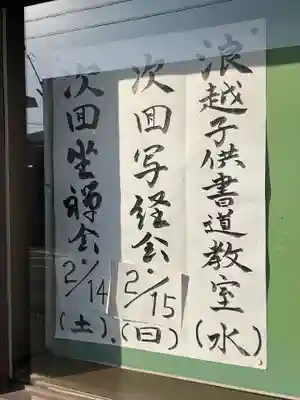 浪越子供書道教室(水)
次回写経会・2/15(日)
次回坐禅会・2/14(土)